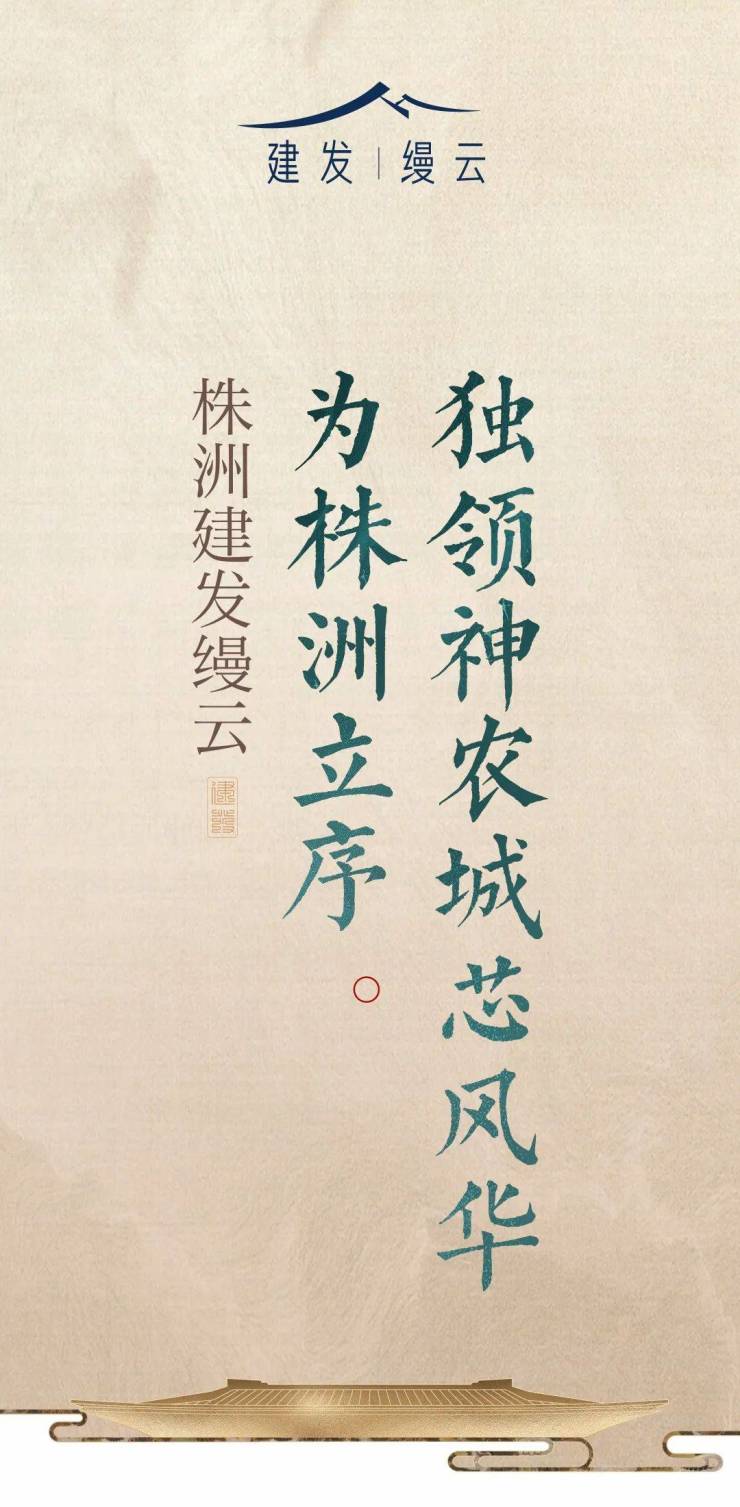 建发|缦云
独领神农城芯风华
为株洲立序
株洲建发缦云
建发